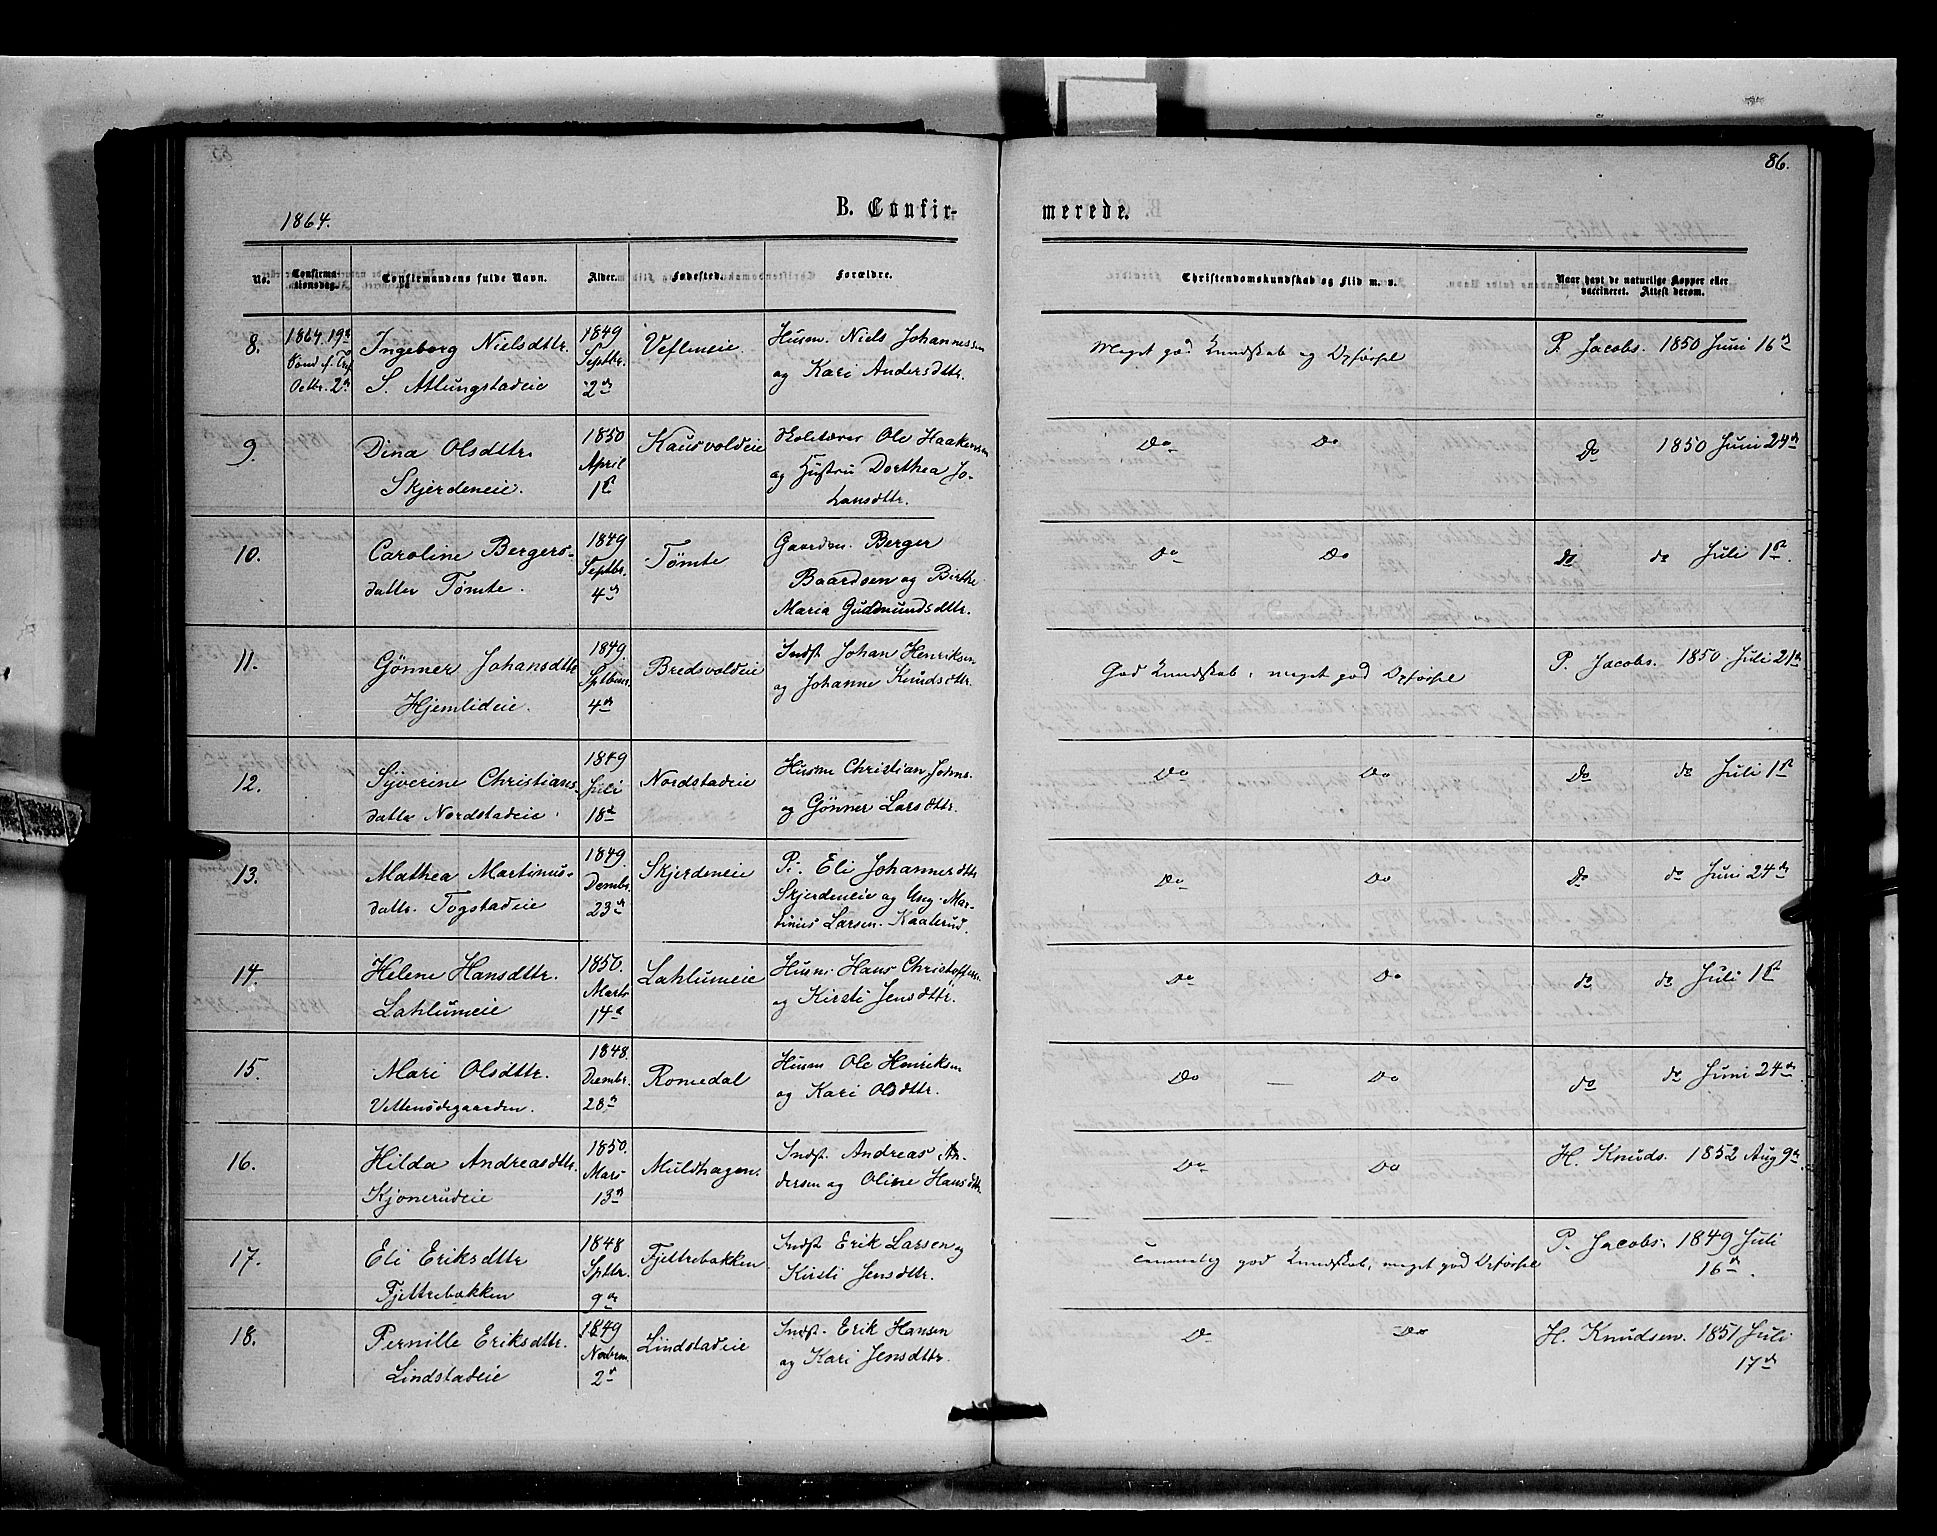 86.
1864.
B. Confir-
merede.
No.
Confirma-
tionsdag.
Confirmandens fulde Navn.
Alder.
Fødested.
Forældre.
Christendomskundskab og Flid m. v.
Naar havt de naturlige Kopper eller
vaccineret. Attest derom.
8.
1864. 19de
Sønd. f. Tref.
Octbr. 2den
Ingeborg Nielsdttr.
S. Atlungstadeie
1849
Septbr.
2den
Vestmeie.
Husm. Niels Johannessen
og Kari Andersdttr.
Meget god Kundskab og Opførsel
P. Jacobs. 1850 Juni 16de
9.
Dina Olsdttr.
Skjerdeneie.
1850
April
1ste
Kausvoldeie
Skolelærer Ole Haakensen
og Hustru Dorthea Jo-
hansdttr.
Do Do
Do 1850 Juni 24de
10.
Caroline Bergers-
datter Tømte.
1849
Septbr.
4de
Tømte
Gaardm. Berger
Baardsen og Birthe
Maria Gudmundsdttr.
Do Do
do do Juli 1ste
11.
Gønner Johansdttr
Hjemlideie.
1849.
Sptbmr.
4de
Bredsvoldeie
Indst Johan Henriksen
og Johanne Knudsdttr.
God Kundskab, meget god Opførsel
P. Jacobs. 1850 Juli 21de
12.
Syverine Christians-
datter Nordstadeie.
1849
Juli
18de
Nordstadeie
Husm Christian Johns.
og Gønner Larsdttr.
Do Do
Do do Juli 1ste
13.
Mathea Martinus-
dattr. Togstadeie
1849.
Dembr.
23de
Skjerdeneie
P. Eli Johannesdttr
Skjerdeneie og Ung. Mar-
tinius Larsen Kaaterud.
Do Do
Do do Juni 24de
14
Helene Hansdttr.
Lahlumeie
1850.
Marts
14de
Lahlumeie
Husm. Hans Christoffersen
og Kirsti Jensdttr.
Do Do
do do Juli 1ste
15.
Mari Olsdttr.
Vettensdegaarden.
1848.
Decmbr.
28de
Romedal
Husm Ole Henriksen
og Kari Olsdttr.
Do — Do
do do Juni 24de
16.
Hilda Andreasdttr.
Kjonerudeie
1850.
Mars
13de
Muldhagen.
Indst. Andreas An-
dersen og Oline Hansdttr.
Do Do
H. Knuds. 1852 Aug 9de
17.
Eli Eriksdttr
Fjettrebakken
1848
Spttr.
9de
Fjettrebakken
Indst Erik Larsen og
Kirsti Jensdttr.
Temmelig god Kundskab, meget god Opførsel
P. Jacobs. 1849 Juli
16de.
18.
Pernille Eriksdttr.
Lindstadeie
1849
Novbrm.
2den
Lindstadeie
Indst. Erik Hansen
og Kari Jensdttr.
Do Do
H. Knudsen. 1851 Juli
17de